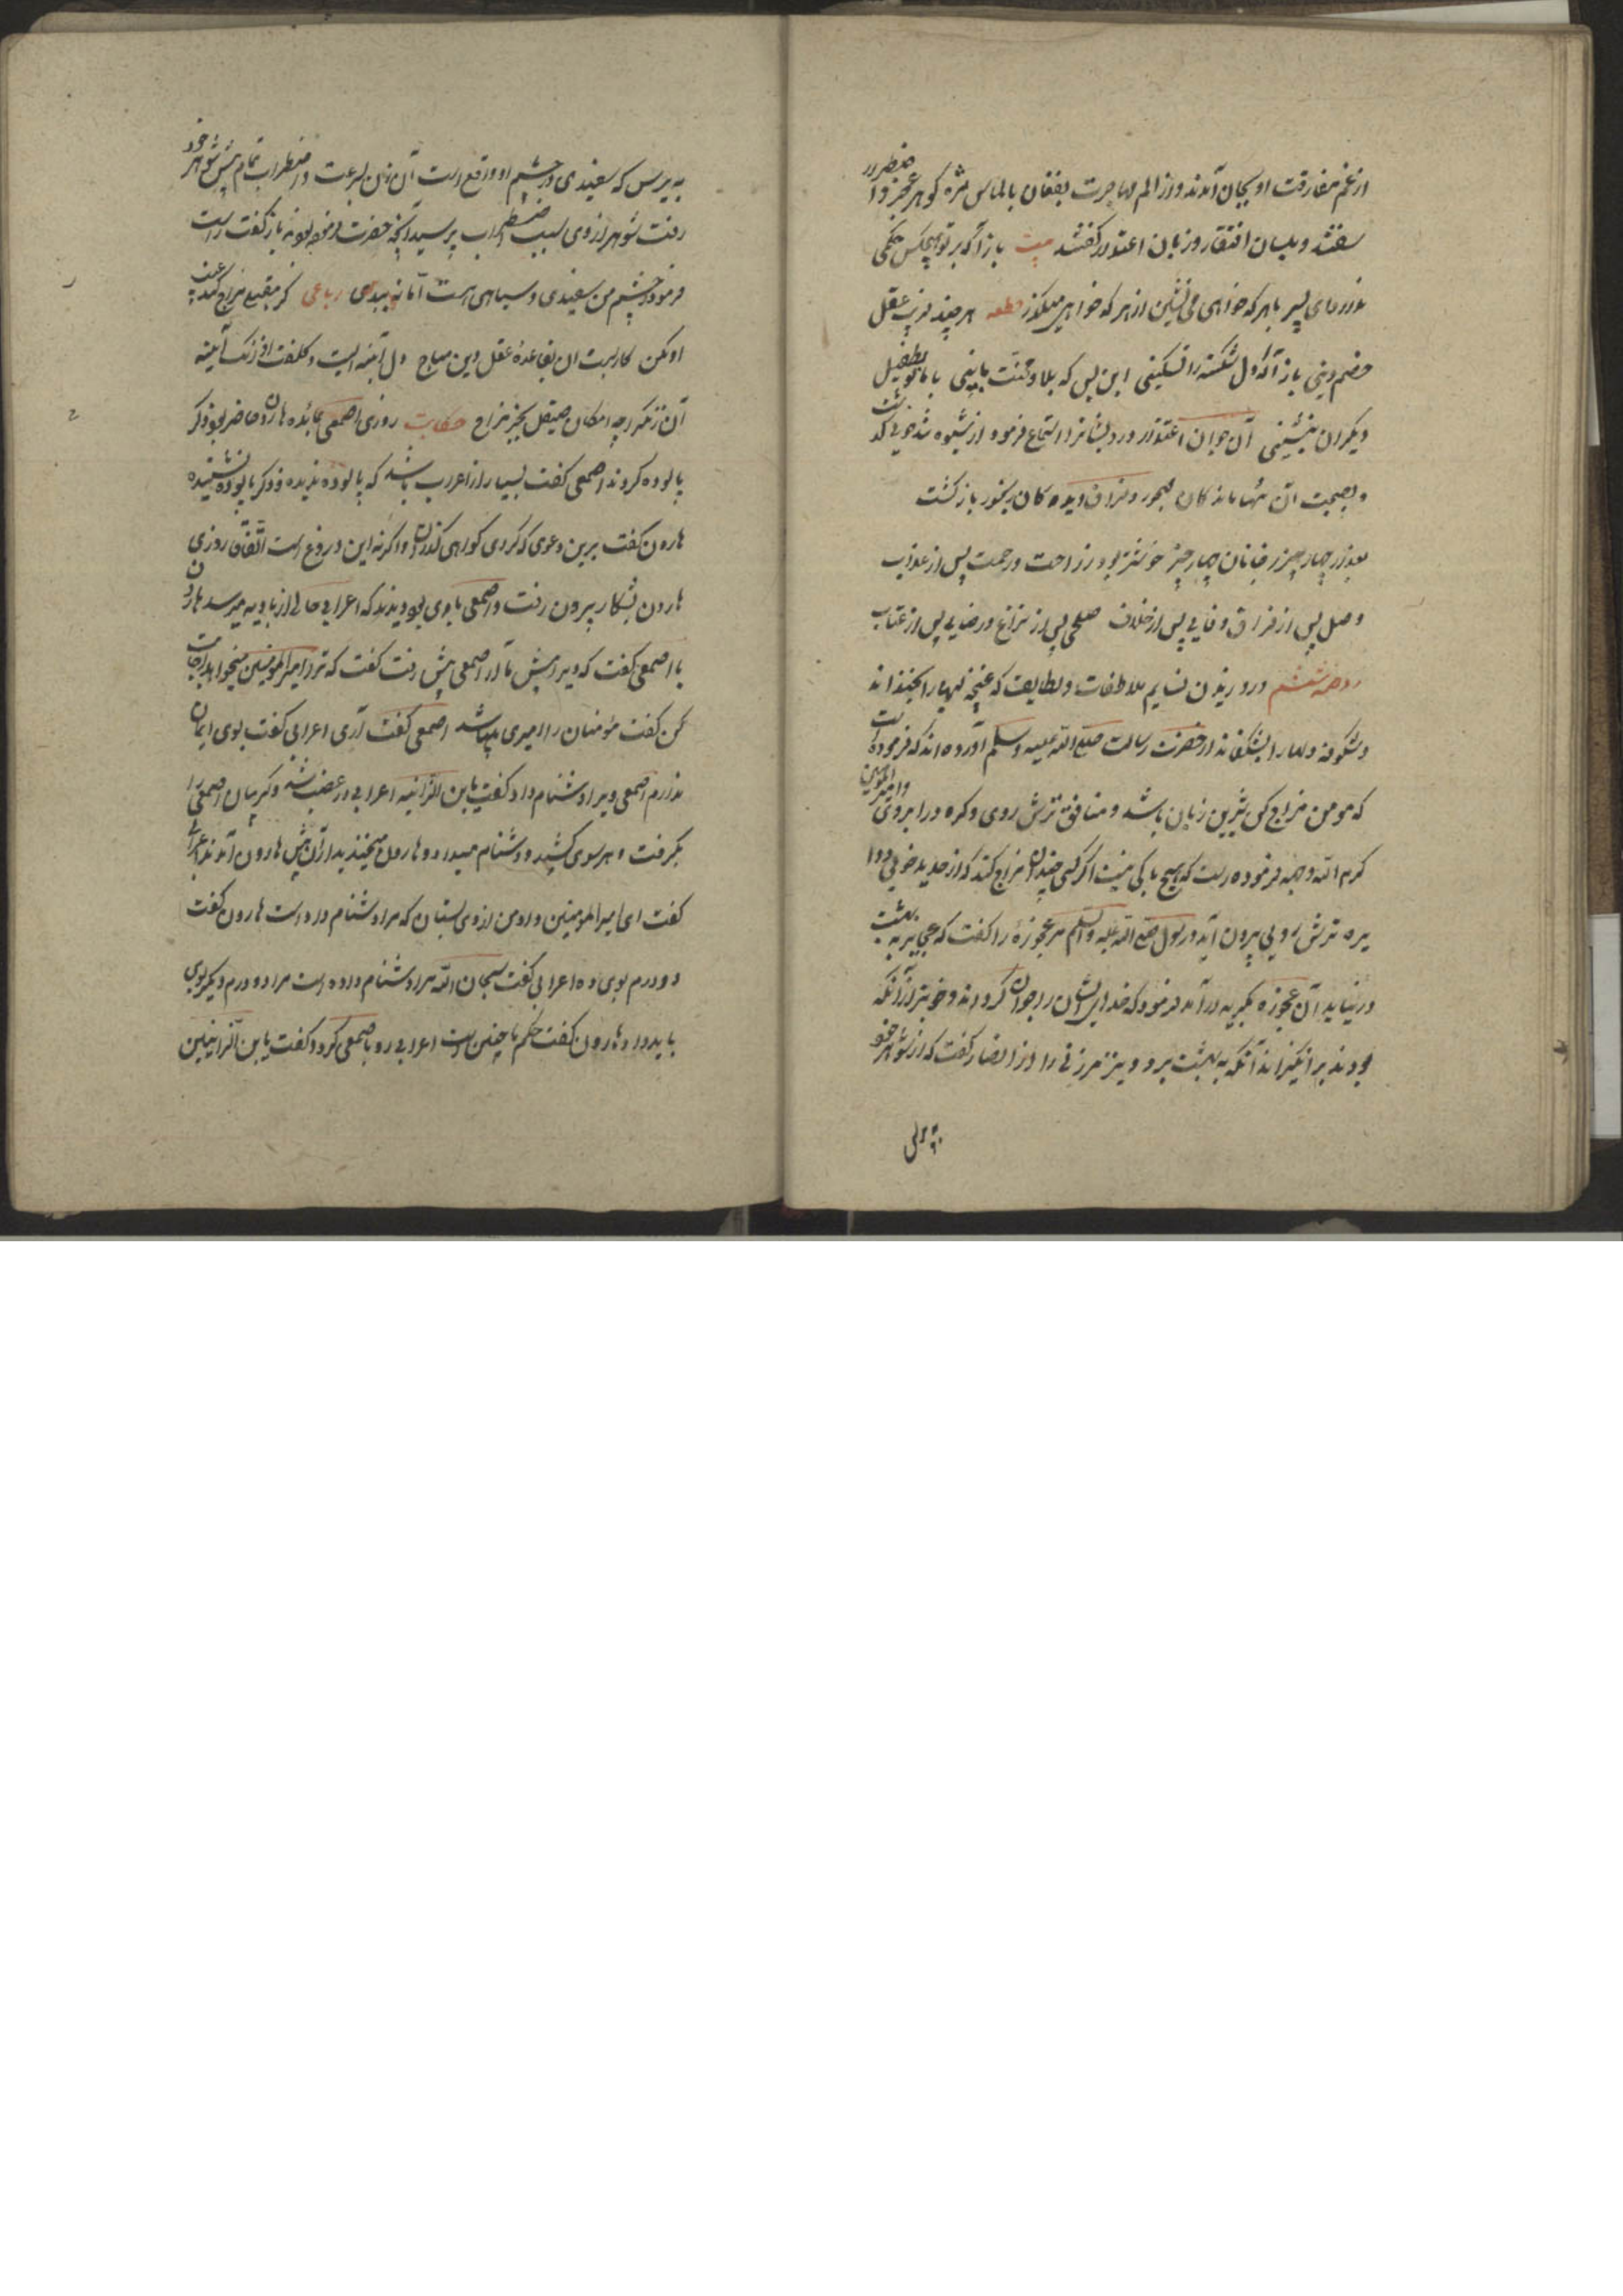 از غم مفارقت او بجان آمدند و از الم مهاجرت بفغان بالماس مژه گوهر عجز و اضطرار
سفتند و بلسان افتقار و زبان اعتذار گفتند بیت بازآ که بر تو هیچکس حکمی
ندارد ای پسر با هر که خواهی می نشین از هر که خواهی میگذر قطعه هر چند فریب عقل
و خصم دینی بازآ که دل شکسته را تسکینی این بس که بلا و محنت با بینی با ما بطفیل
دیگران بنشینی آن جوان اعتذار درویشانرا استماع فرمود از شیوه تندخویی گذشت
و بصحبت آن تنها ماندگان مهجور و فراق دیدگان رنجور بازگشت
بعد از چهار چیز رفیقان چهار چیز خوشتر بود راحت و رحمت پس از عذاب
وصل پس از فراق وفایی پس از خلاف صلحی پس از نزاع و رضایی پس از عتاب
روضه ششم در وزیدن نسایم ملاطفات و لطایف که غنچه لبها را بخنداند
و شکوفه دلها را بشکفاند از حضرت رسالت صلی الله علیه و سلم آورده اند که فرموده است
که مومن مزاح کن شیرین زبان باشد و منافق ترش روی و گره در ابروی و امیر المومنین
کرم الله وجهه فرموده است که هیچ باکی نیست اگر کسی چندان مزاح کند که از حد بدخویی و دا
یره ترش رویی بیرون آید رسول صلی الله علیه و سلم مر عجوزه را گفت که عجایز به بهشت
در نیاید آن عجوزه بگریه درآمد فرمود که خدای ایشان را جوان گرداند و خوبتر از آنکه
بودند برانگیزاند آنگه به بهشت برد و نیز مر زنی را از انصار گفت که از شوهر خود
به پرس که سفیدی در چشم او واقع است آن زن بسرعت و اضطراب تمام پیش شوهر خود
رفت شوهر از وی سبب اضطراب پرسید آنچه حضرت فرموده بودند باز گفت گفت راست
فرمود در چشم من سفیدی و سیاهی هست اما نه ببدی رباعی گر مقبلی مزاح کند عیب
او مکن کاریست آن بقاعده عقل و دین مباح دل آینه ایست و کلفت او زنگ آینه
آن زنگ را چه امکان صیقل بجز مزاح حکایت روزی اصمعی بمائده هارون حاضر بود ذکر
پالوده کردند اصمعی گفت بسیار از اعراب باشد که پالوده ندیده و ذکر پالوده نشنیده
هارون گفت برین دعوی که کردی گواهی گذران و اگر نه این دروغ است اتفاقا روزی
هارون بشکار بیرون رفت و اصمعی با وی بود دیدند که اعرابی حالی از بادیه میرسد هارون
با اصمعی گفت که ویرا پیش ما آر اصمعی پیش رفت گفت که ترا امیر المومنین میخواند اجابت
کن گفت مومنان را امیری میباشد اصمعی گفت آری اعرابی گفت بوی ایمان
ندارم اصمعی ویرا دشنام داد گفت یا ابن الزانیه اعرابی در غضب شد و گریبان اصمعی را
بگرفت و هر سوی کشید و دشنام میداد و هارون میخندید از آن پیش هارون آمدند اعرابی
گفت ای امیر المومنین داد من از وی بستان که مرا دشنام داده است هارون گفت
دو درم بوی ده اعرابی گفت سبحان الله مرا دشنام داده است مرا دو درم دیگر بوی
باید داد هارون گفت حکم ما چنین است اعرابی رو باصمعی کرد و گفت یا ابن الزانیتین